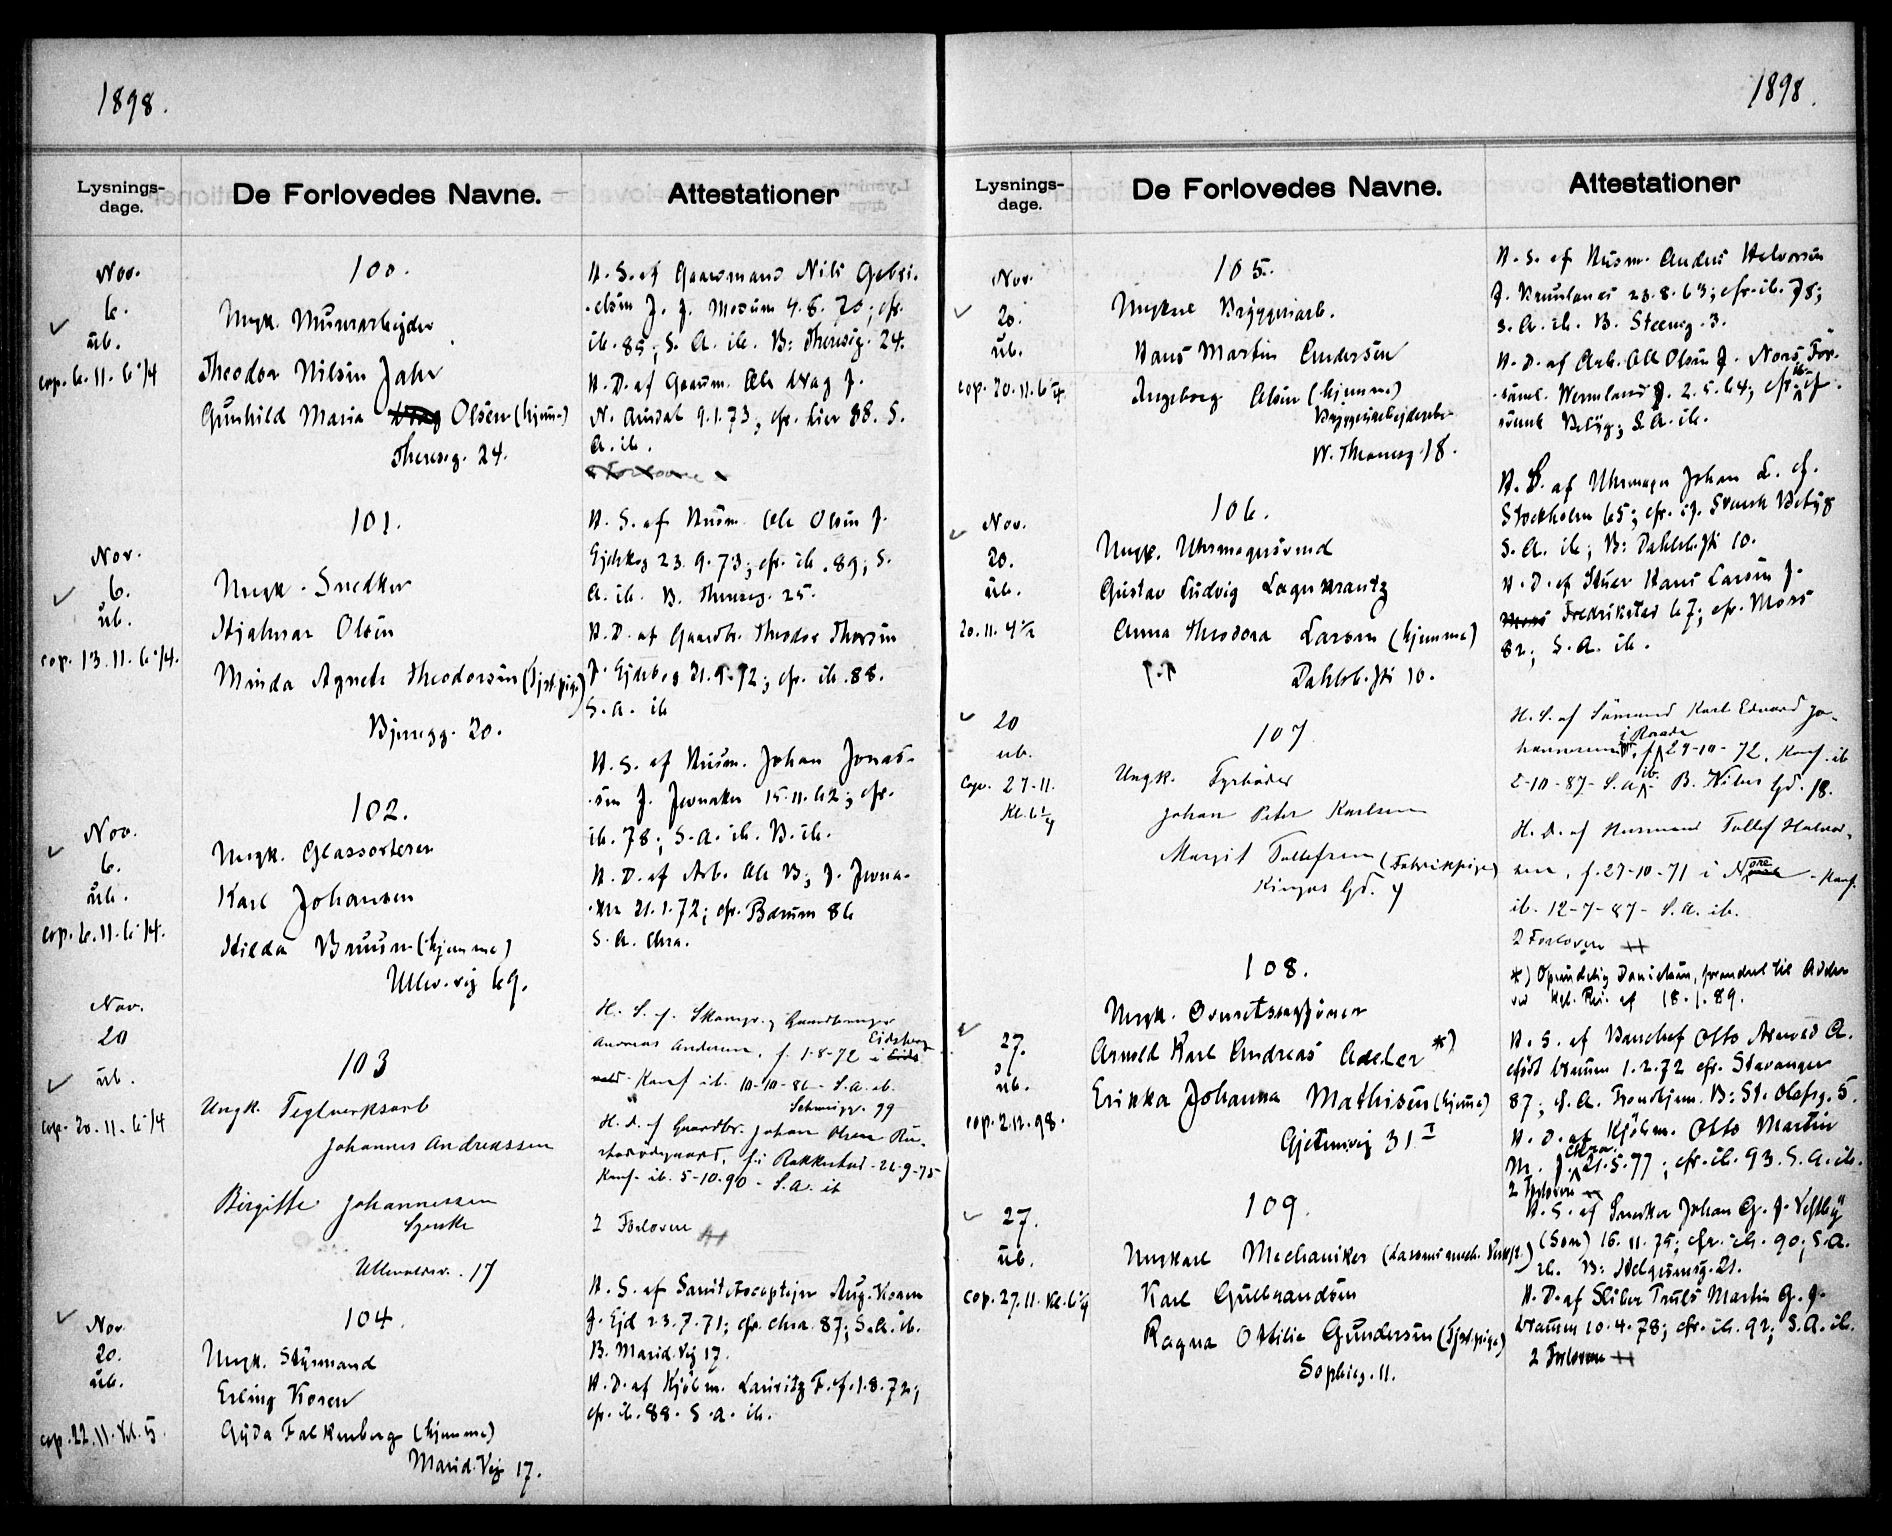 1898.
Lysnings-
dage.
De Forlovedes Navne.
Attestationer
Nov.
6.
üb.
cop. 6.11. 6 1/4
100.
Ungk. Murarbeider
Theodor Nilsen Jahr
Gunhild Maria Olsen (hjemme)
Theresg. 24.
H. S. af Gaardmand Nils Gabri-
elsen J. f. Modum 4.6.70; cfr.
ib. 85; S. A. ib. B: Theresg. 24.
H. D. af Gaardm. Ole Wag f.
N. Aurdal 9.1.73; cfr. hier 88. S.
A. ib.
Nov.
6.
üb.
cop. 13.11. 6 1/4.
101.
Ungk. Snedker
Hjalmar Olsen
Minda Agnete Theodorsen (Tjst.pige)
Bjerregg. 20.
H. S. af Husm. Ole Olsen f.
23.9.73; cfr. ib. 89; S.
A. ib. B. Theresg. 25.
H. D. af Gaardbr. Theodor Thorsen
f. Eidsberg 21.5.72; cfr. ib. 88.
S. A. ib
Nov.
6.
üb.
cop. 6.11. 6 1/4.
102.
Ungk. Glassorterer
Karl Johansen
Hilda Bruun (hjemme)
Ullev. vej 69.
H. S. af Husm. Johan Jonas-
sen f. Jevnaker 15.11.62; cfr.
ib. 78; S. A. ib. B. ib.
H. D. af Arb. Ole B; f. Jevna-
ker 21.1.72; cfr. Bærum 86
S. A. Chra.
Nov.
20
üb.
cop. 20.11. 6 1/4
103
Ungk. Teglverksarb
Johannes Andreassen
Birgitte Johannessen
Syerske
Ullevoldsv. 17
H. S. af Skomgr. og Gaardbruger
Andreas Andersen, f. 1-8-72 i Eidsberg
Konf ib. 10-10-86 - S. A. ib.
Schweigg. 99
H. D. af Gaardbr. Johan Olsen Ru-
f. i Rakkestad - 26-9-75
Konf. ib. 5-10-90 - S. A. ib
2 Forlovere
Nov.
20.
üb.
cop. 22.11. Kl. 5
104.
Ungk. Styrmand
Erling Koren
Gyda Falkenberg (hjemme)
Marid. Vej 17.
H. S. af Sanitetscaptejn Aug. Koren
f. Ejd 23.7.71; cfr. Chra. 87; S. A. ib.
B. Marid. Vej 17.
H. D. af Kjöbm. Lauritz F. f. 1.8.72;
cfr. ib. 88. S. A. ib.
1898.
Lysnings-
dage.
De Forlovedes Navne.
Attestationer
Nov.
20.
üb.
cop. 20.11. 6 1/4
105.
Ungkarl Bryggeriarb.
Hans Martin Andersen
Ingeborg Olsen (hjemme)
W. Thranesg. 18.
H. S. af Husm. Anders Halvorsen
f. Brunlanes 23.8.63; cfr. ib. 78;
S. A. ib. B. Steensg. 3.
H. D. af Arb. Olle Olsen f. Nors För-
saml. Wermland f. 2.5.64; cfr. ib. cf.
svensk Betyg; S. A. ib.
Nov.
20.
üb.
20.11. 4 1/2
106.
Ungk. Uhrmagersvend
Gustav Ludvig Lagerkrantz
Anna Theodora Larsen (hjemme)
Dahlsb. Sti 10.
H. S. af Uhrmager Johan L. f.
Stockholm 65; cfr. cf. Svensk Betyg
S. A. ib; B: Dahlsb. Sti 10.
H. D. af Stuer Hans Larsen f.
Fredrikstad 67; cfr. Moss
82; S. A. ib.
20
ub.
Cop. 27-11.
Kl. 6 1/4
107
Ungk. Fyrbøder
Johan Peter Karlsen
Margit Tollefsen (Fabrikpige)
Kingos Gd. 4
H. S. af Sömand Karl Edvard Jo-
hannesen, f. i Raade 29-10-72, Konf. ib
2-10-87 - S. A. ib. B. Nilus Gd. 18.
H. D. af Husmand Tollef Halvor-
sen, f. 27-10-71 i Nore - Konf.
ib. 12-7-87 - S. A. ib.
2 Forlovere
*) Oprindelig Danielsen, forandret til Adeler
ved Kgl. Res. af 18.1.89.
27.
üb.
cop. 2.12.98.
108.
Ungk.
Arnold Karl Andreas Adeler *)
Erikka Johanna Mathisen (hjemme)
Gjetemvej 31 I
H. S. af Otto Arnold A.
født 1.2.72 cfr. Stavanger
87; S. A. Trondhjem. B: St. Olafsg. 5.
H. D. af Kjöbm. Otto Martin
M. f. Chra. 21.5.77; cfr. ib. 93. S. A. ib.
2 Forlovere
27.
üb.
cop. 27.11. Kl. 6 1/4
109.
Ungkarl Mechaniker
Karl Gulbrandsen
Ragna Othilie Gundersen (Tjst.pige)
Sophieg. 11.
H. S. af Snedker Johan G. f. Vestby
(Son) 16.11.75; cfr. ib. 90; S. A.
ib. B: Helgesensg. 21.
H. D. af Sliber Truls Martin G. f.
10.4.78; cfr. ib. 92; S. A. ib.
2 Forlovere